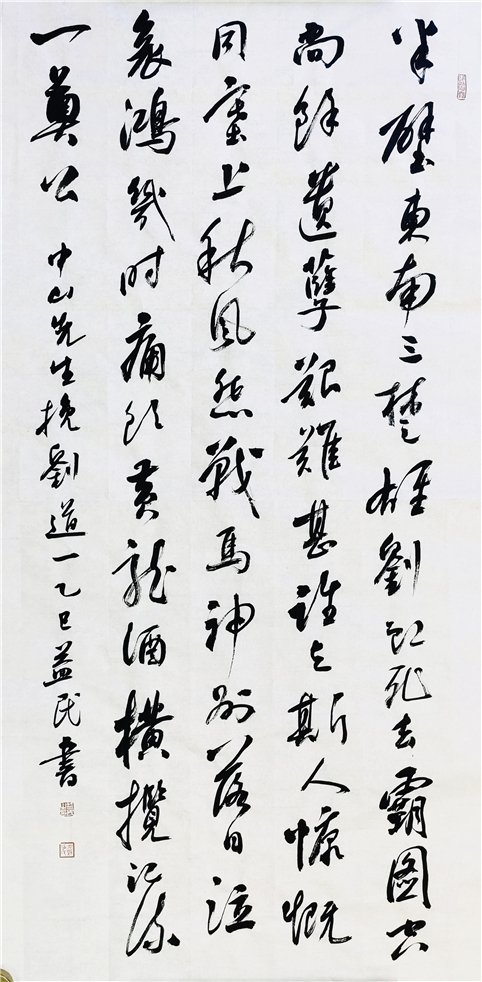 半壁東南三楚雄劉郎死去霸圖空
尚餘遺孽艱難甚誰与斯人慷慨
同塞上秋風悲戰馬神州落日泣
哀鴻幾時痛飲黃龍酒橫攬江流
一奠公 中山先生挽劉道一乙巳益民書